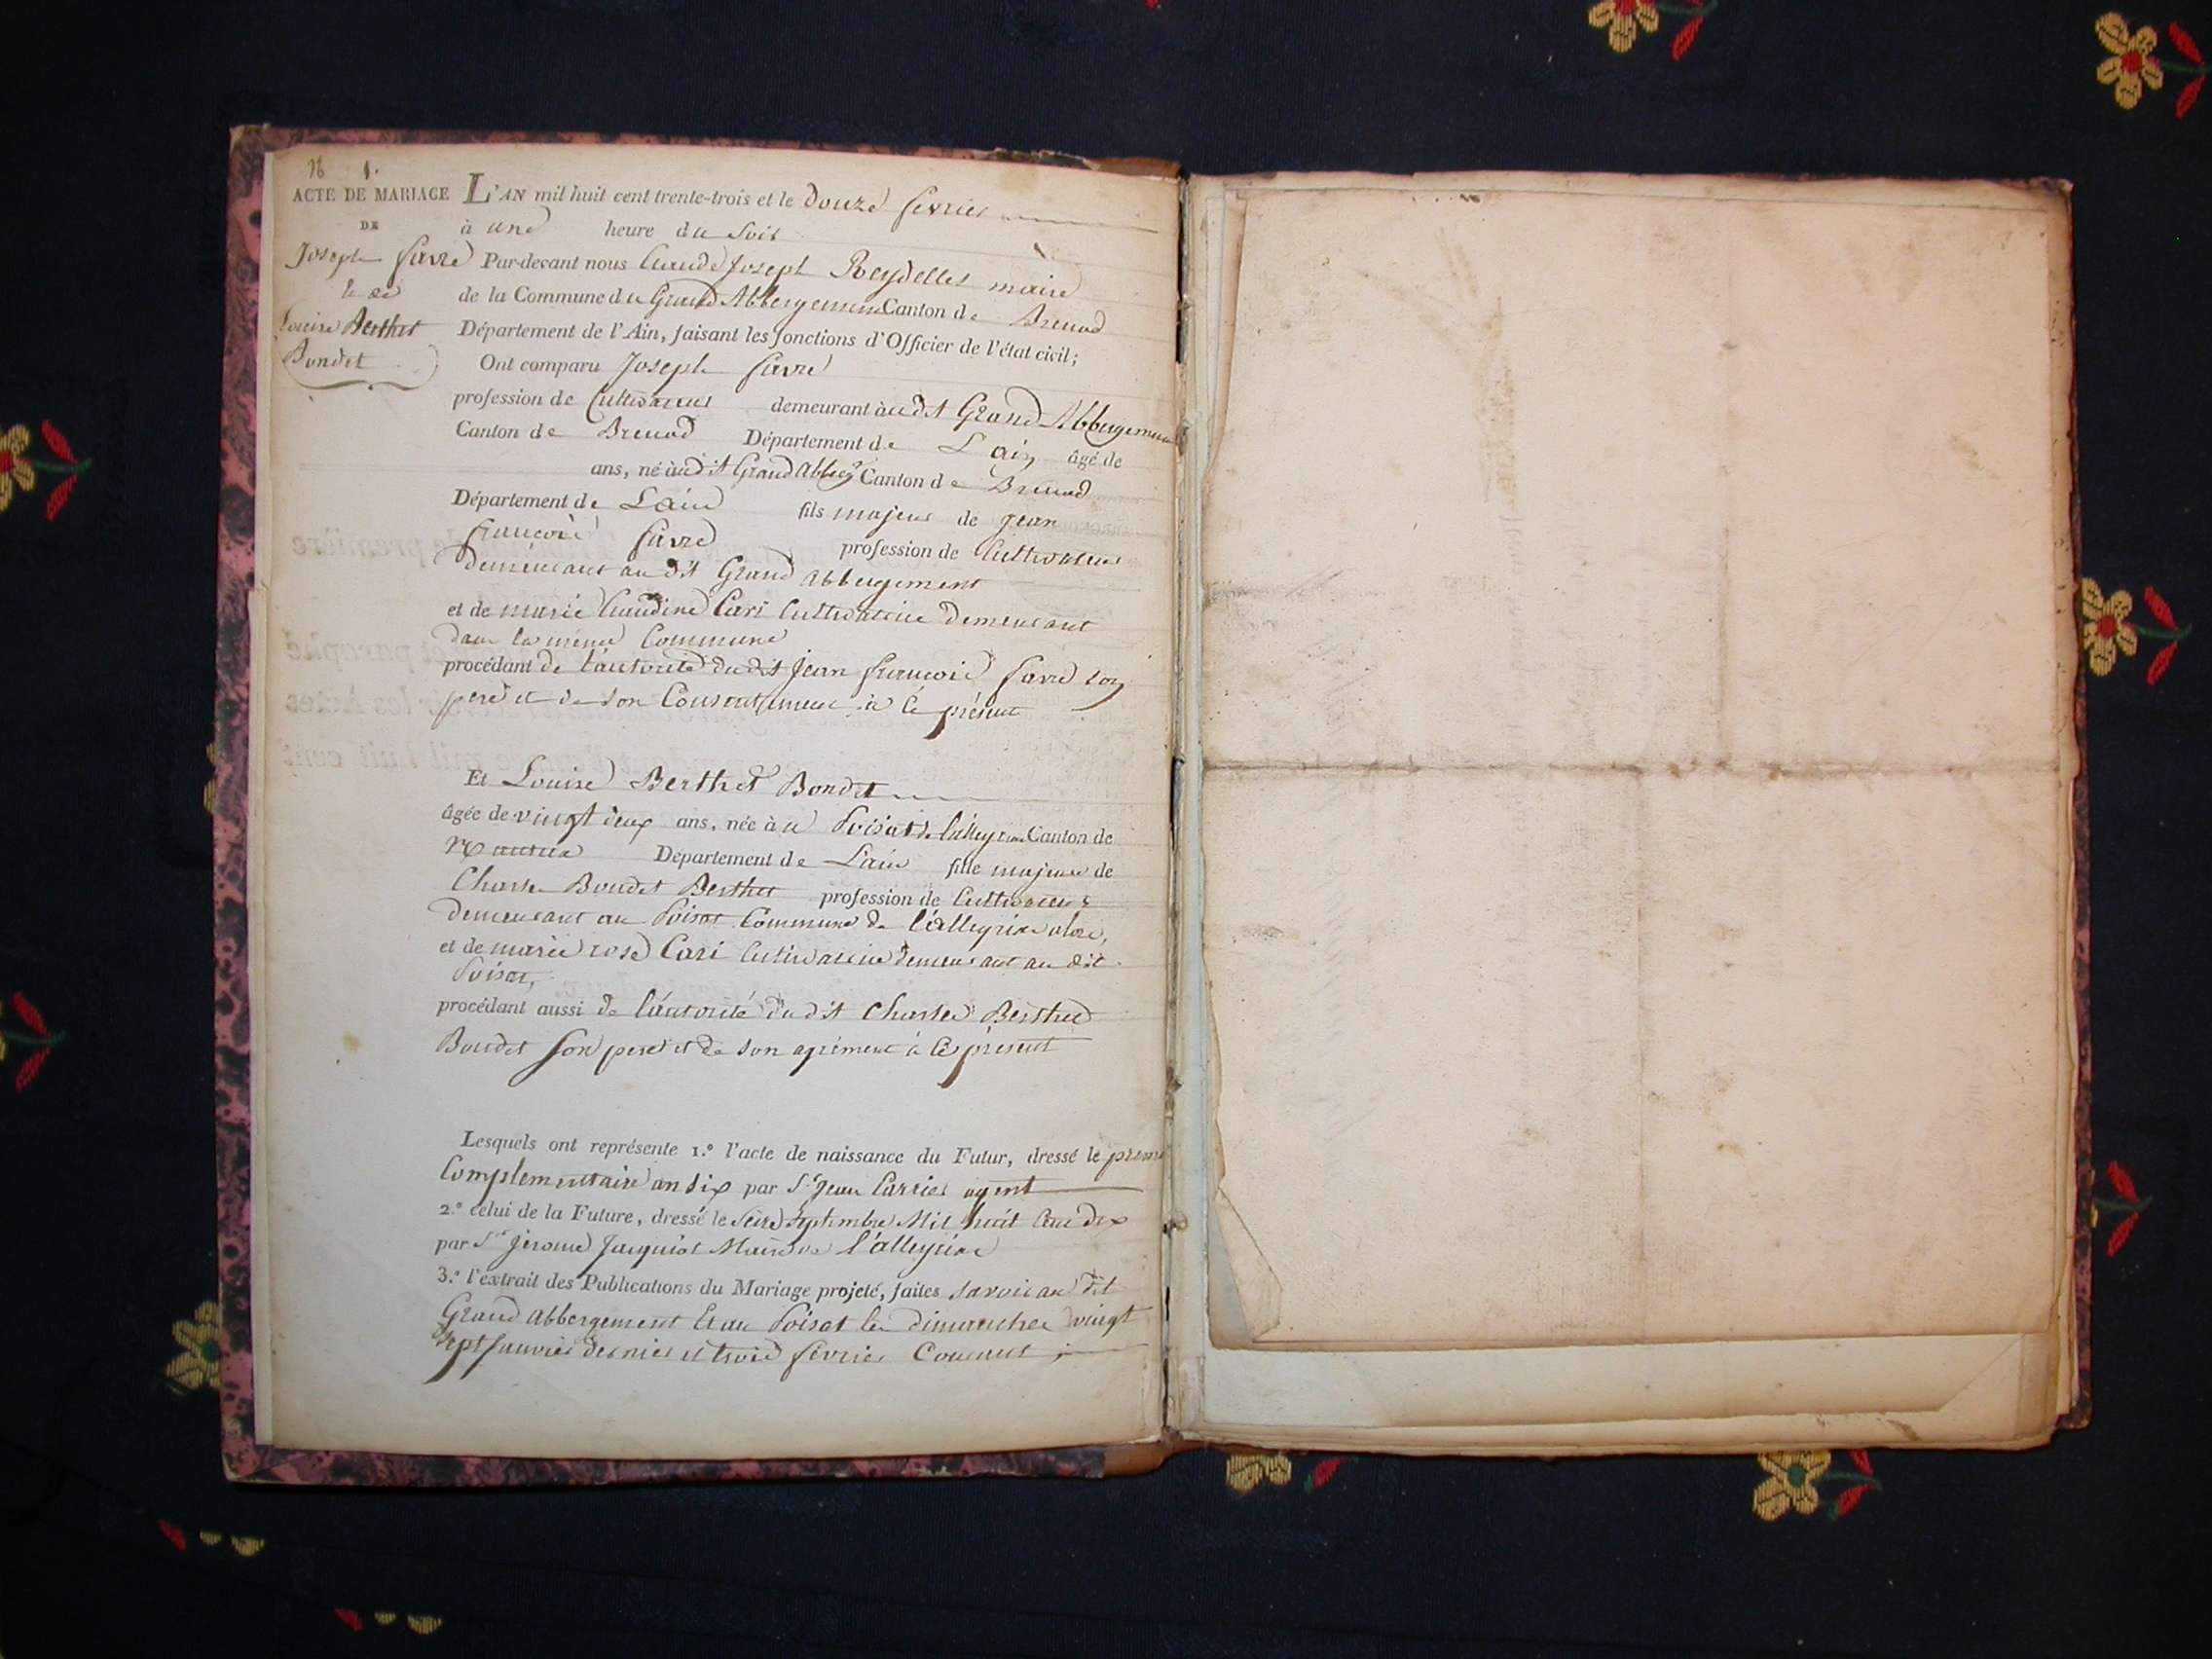 N.º 1.
ACTE DE MARIAGE
DE
Joseph favre
Louise Berthet
Bondet
L'AN mil huit cent trente-trois et le douze fevrier
à une heure du soir
Par-devant nous Claude Joseph Reydellet maire
de la Commune du Grand Abbergement Canton de Brenod
Département de l'Ain, faisant les fonctions d'Officier de l'état civil;
Ont comparu Joseph favre
profession de Cultivateur demeurant audit Grand Abbergement
Canton de Brenod Département de L'ain âgé de
ans, né audit Grand Abberg Canton de Brenod
Département de L'ain fils majeur de jean
françois favre profession de Cultivateur
demeurant au dit Grand abbergement
et de marie Claudine Cari Cultivatrice demeurant
dans la même Commune
procédant de l'autorité dudit jean françois favre son
pere et de son Consentement à Ce présent
Et Louise Berthet Bondet
âgée de vingt deux ans, née au Poisat de l'alleyriat Canton de
Nantua Département de L'ain fille majeure de
Charle Bondet Berthet profession de Cultivateur
demeurant au Poisat Commune de l'alleyriat
et de marie rose Cari Cultivatrice demeurant au dit
Poisat,
procédant aussi de l'autorité du dit Charles Berthet
Bondet son pere et de son agrément à Ce présent
Lesquels ont représente 1.º l'acte de naissance du Futur, dressé le
Complementaire an six par Sr jean Carrier agent
2.º celui de la Future, dressé le seize septembre Mil huit Cent dix
par Sr jerome jacquiot Maire de l'alleyriat
3.º l'extrait des Publications du Mariage projeté, faites savoir au dit
Grand abbergement Et au Poisat les dimanches vingt
sept janvier dernier et trois fevrier Courant ;